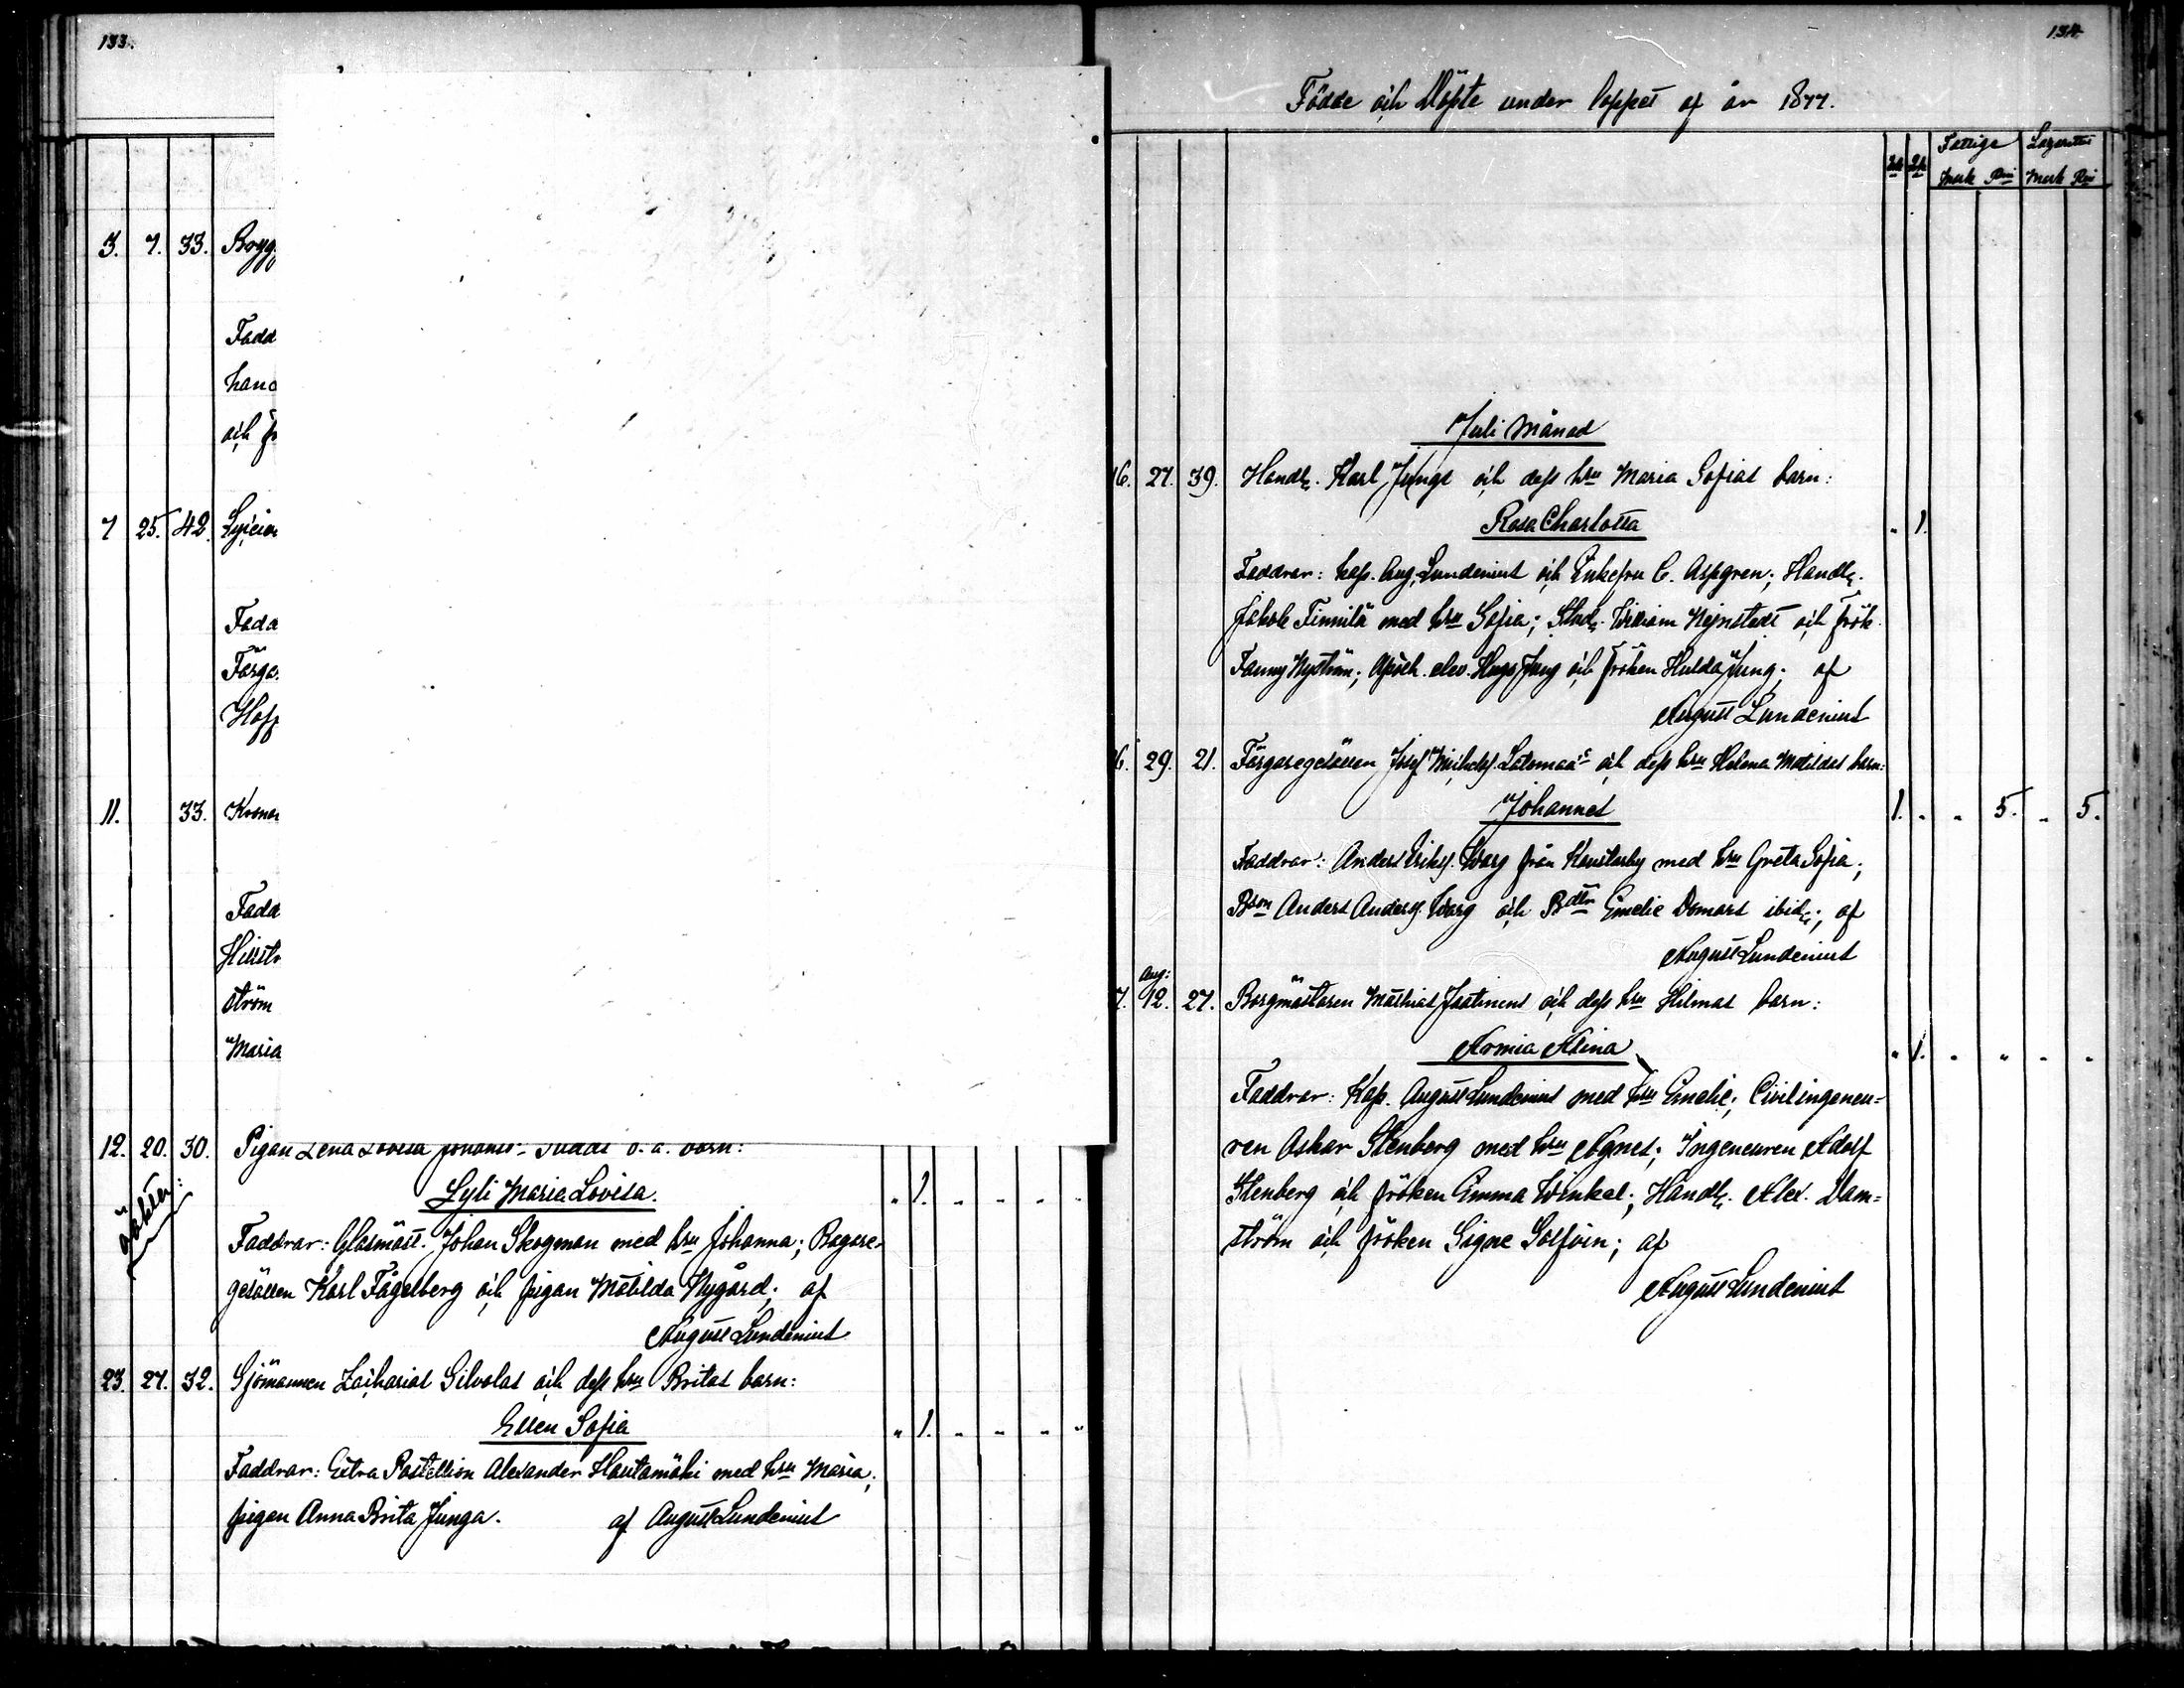 133.
3. 7. 33. Bryg
Fadd
hand
och fr
7 25. 42. Lycien
Fadd
Färga
Hof
11. 33. Krono
Fadd
Hillstr
ström
Maria
12. 20. 30. Pigan Lena Lovisa o. ä. barn:
oäkten:
Lyli Maria Lovisa. " 1. " " " "
Faddrar: Glasmäst. Johan Skogman med hru Johanna; Bagare-
gesällen Karl Fågelberg och pigan Matilda Nygård; af
August Lundenius
23. 27. 32. Sjömannen Zacharias Silvolas och dess hru Britas barn:
Ellen Sofia " 1. " " " "
Faddrar: Extra Postillion Alexander Hautamäki med hru Maria;
pigan Anna Brita Junga. af August Lundenius
134.
Födde och Döpte under loppet af år 1877.
Fattige Lazarettet
Mark Pni Mark Pni
Juli Månad
16. 27. 39. Handl. Karl Jungs och dess hru Maria Sofias barn:
Rosa Charlotta " 1.
Faddrar: kap. Aug. Lundenius och Enkefru C. Aspgren; Handl.
Jakob Finnilä med hru Sofia; Stud. William Hejnstedt och frök.
Fanny Nyström; Apoth. elev. Hugo Jung och fröken Hulda Jung; af
August Lundenius
6. 29. 21. Färgaregesällen Josef Michelss. Latomaa's och dess hru Helena Matildas barn:
Johannes 1. " " 5. " 5.
Faddrar: Anders Eriks. Warg från Kaustarby med hru Greta Sofia;
Bson Anders Anderss. Warg och Bdtr Emelie Domars ibid.; af
August Lundenius
Aug:
7. 12. 27. Borgmästaren Mathias Jaatinens och dess hru Hilmas barn:
Armia Alina " 1. " " " "
Faddrar: Kap. August Lundenius med hru Emelie; Civilingeneu-
ren Oskar Stenberg med hru Agnes; Ingeneuren Adolf
Stenberg och fröken Emma Winkel; Handl. Alex. Dam-
ström och fröken Signe Solfvin; af
August Lundenius